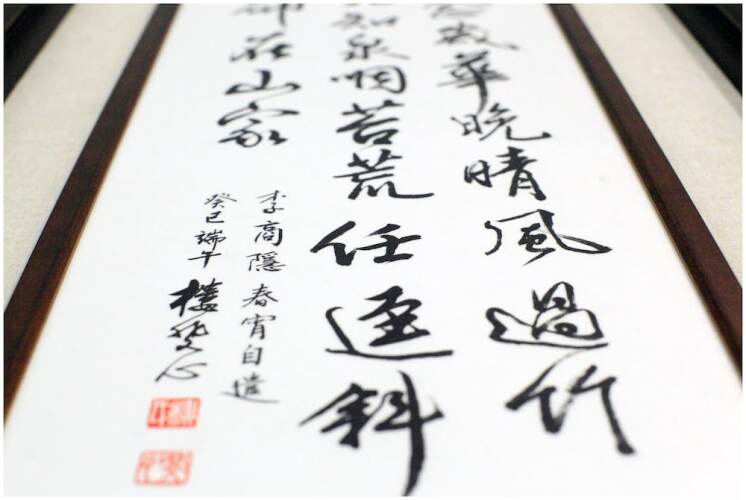 歲華晚晴風過竹
知泉咽苔荒任逕斜
卻在山家
李商隱春宵自遣
癸巳端午樓心